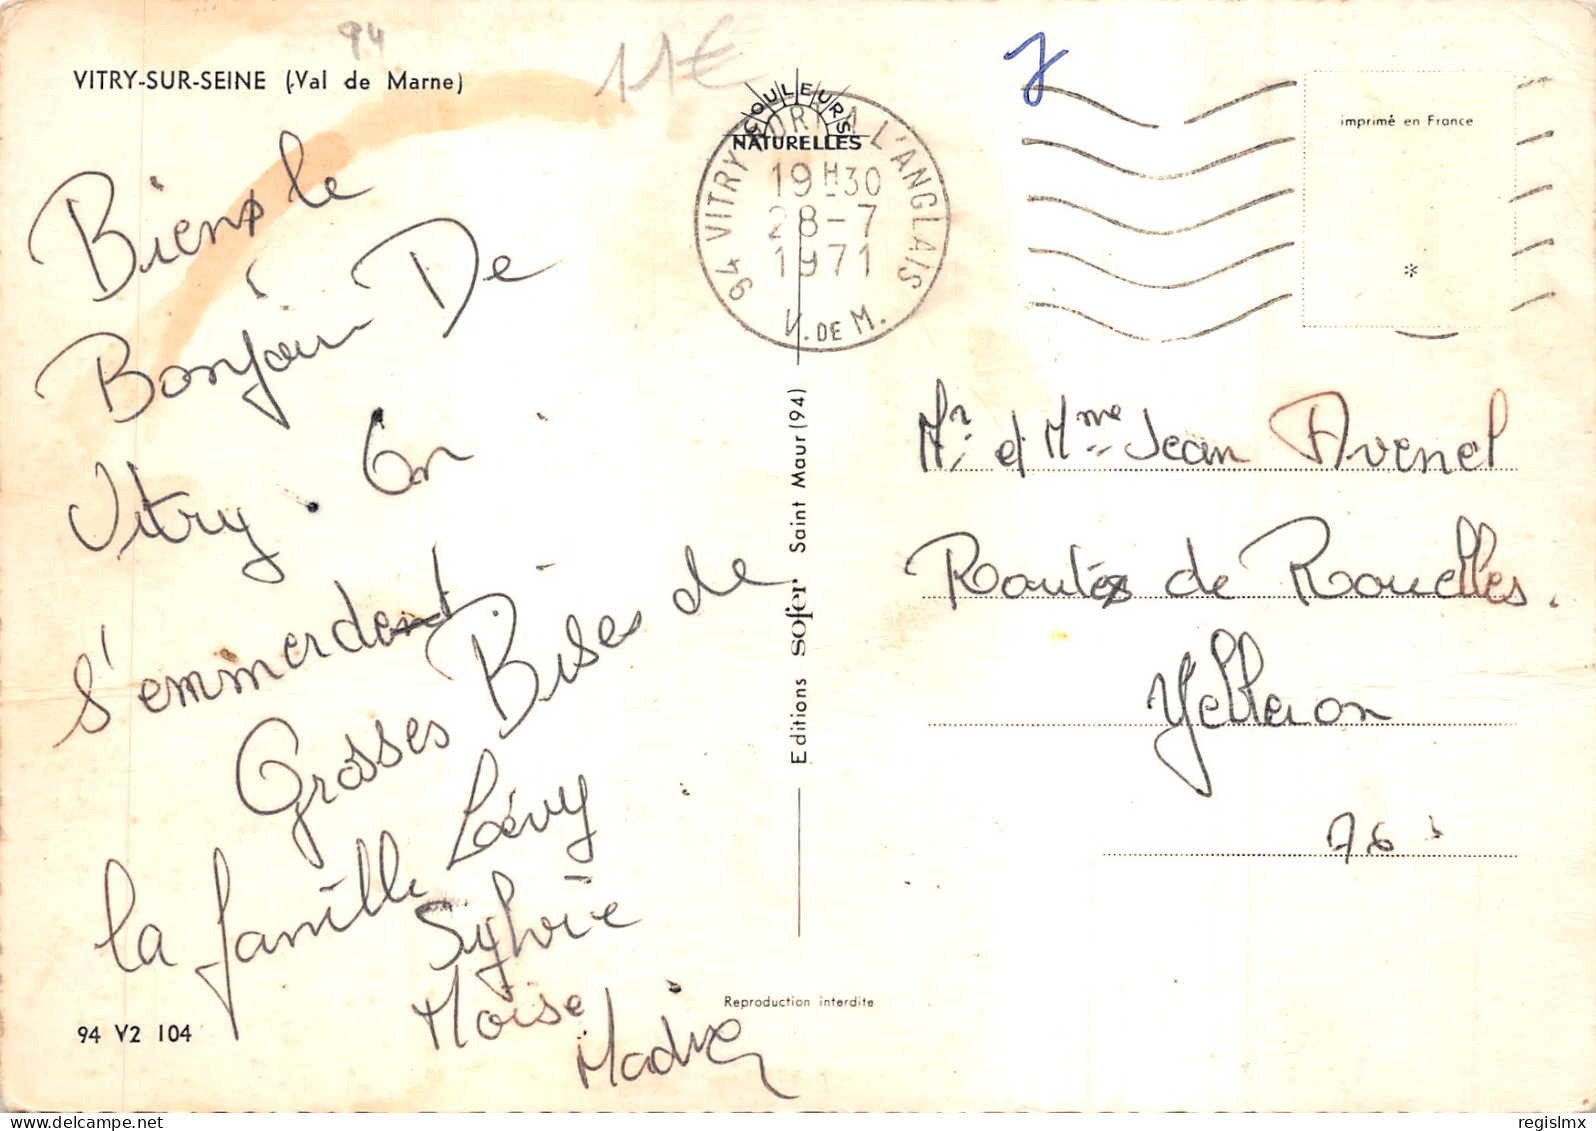 94
11€
VITRY-SUR-SEINE (Val de Marne)
Biens le
Bonjour De
Vitry. On
s'emmerdent
Grosses Bises de
la famille Lévy
Sylvie
Moise
94 V2 104
COULEURS
NATURELLES
94 VITRY PORT A L'ANGLAIS
19H30
28-7
1971
V. DE M.
Editions sofer Saint Maur (94)
Reproduction interdite
imprimé en France
*
Mr. et Mme Jean Avenel
Routes de Rouelles.
76
delcampe.net
regislmx